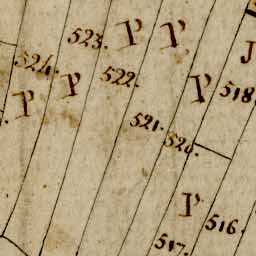 523. P P
J
524. P 522. P 518.
P 521. 520.
P 516.
517.